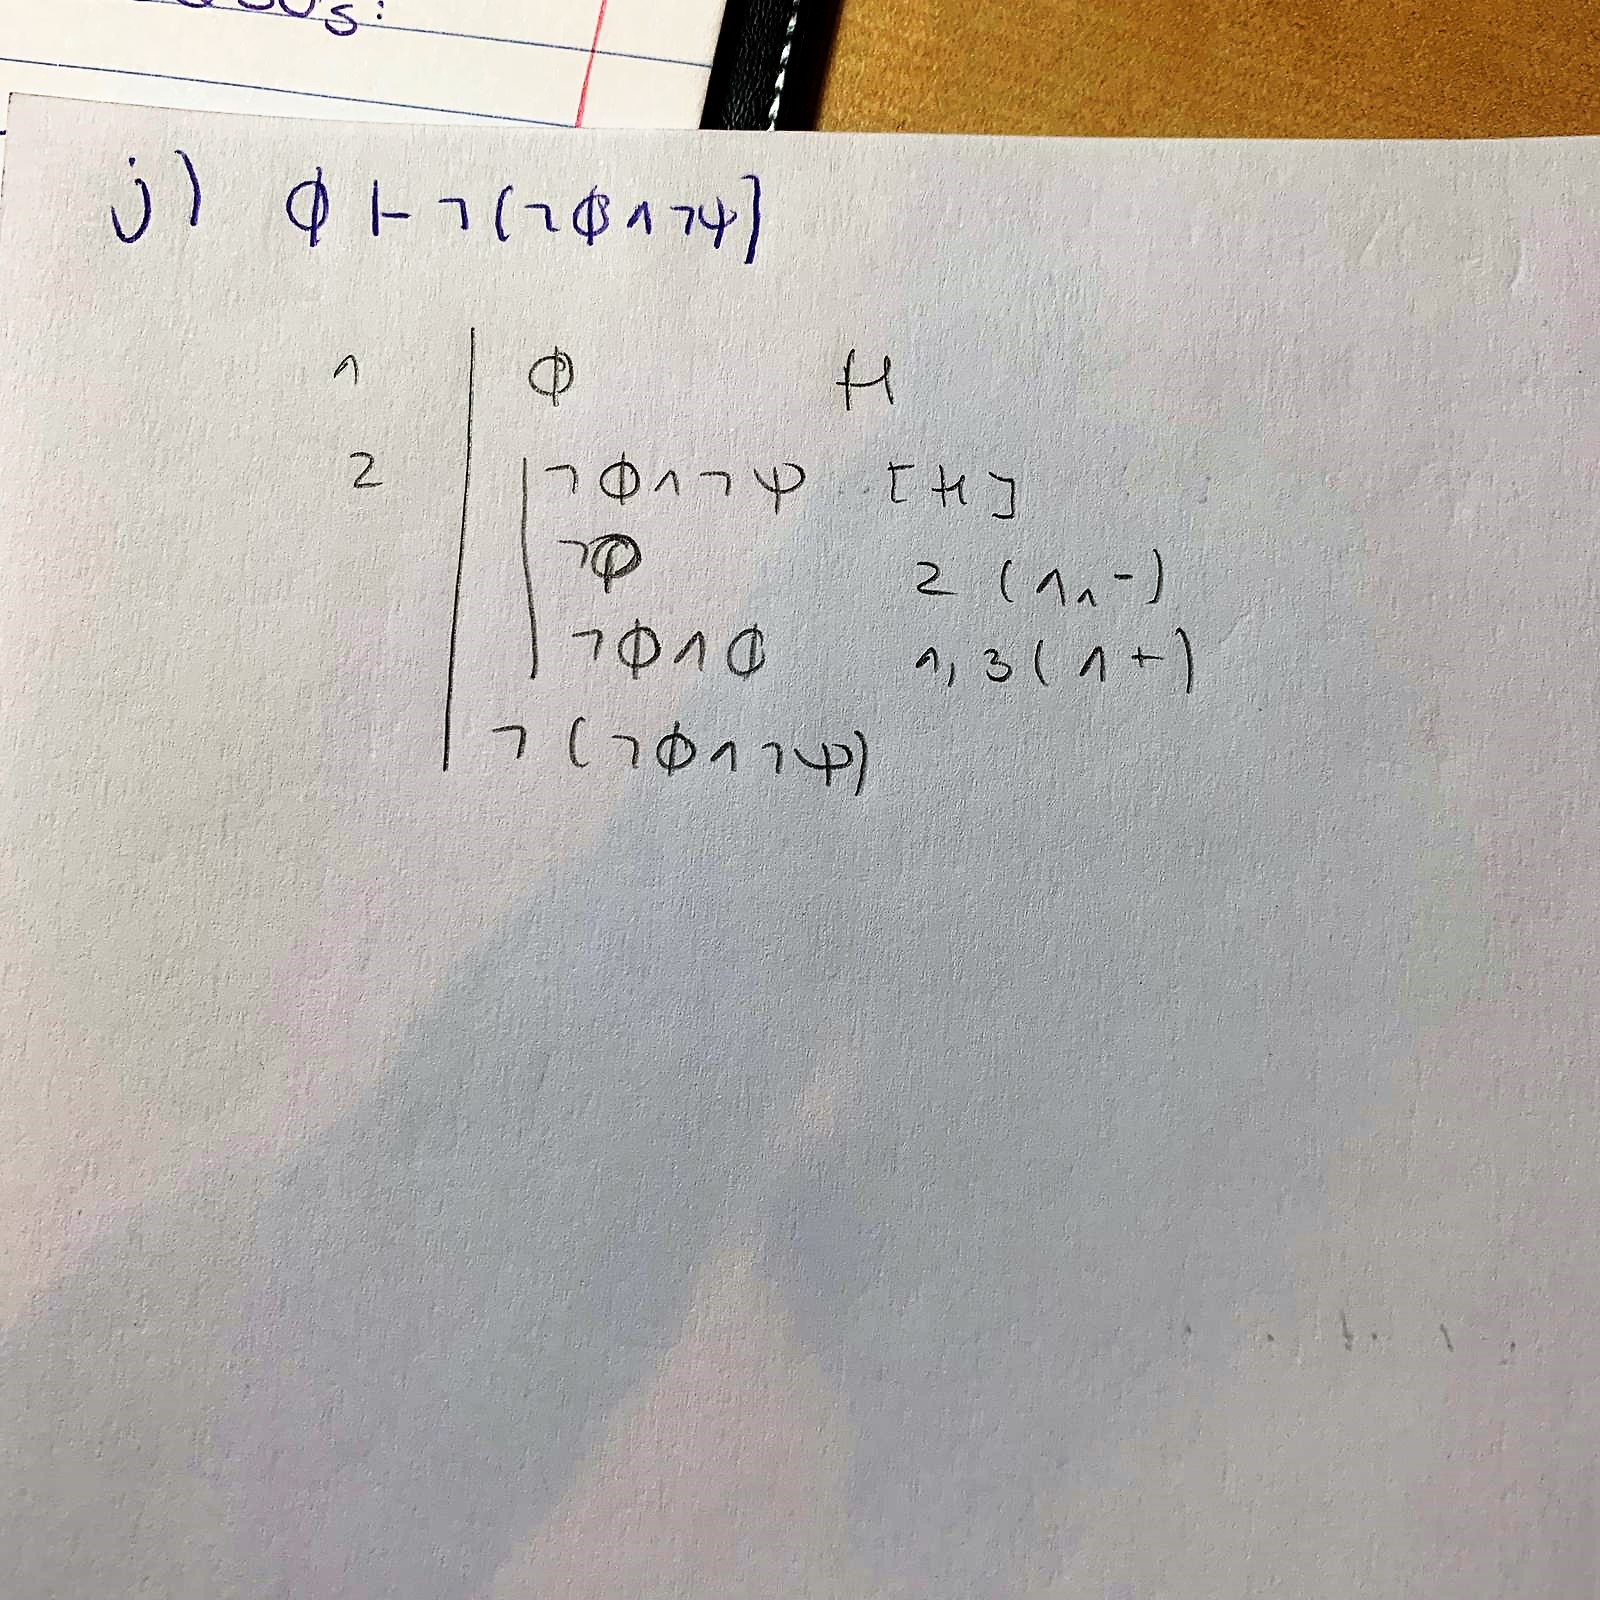 j) φ ⊢ ¬(¬φ∧¬ψ]
1 φ H
2 ¬φ∧¬ψ [H]
¬φ 2 (∧₁-)
¬φ∧φ 1,3(∧+)
¬(¬φ∧¬ψ)